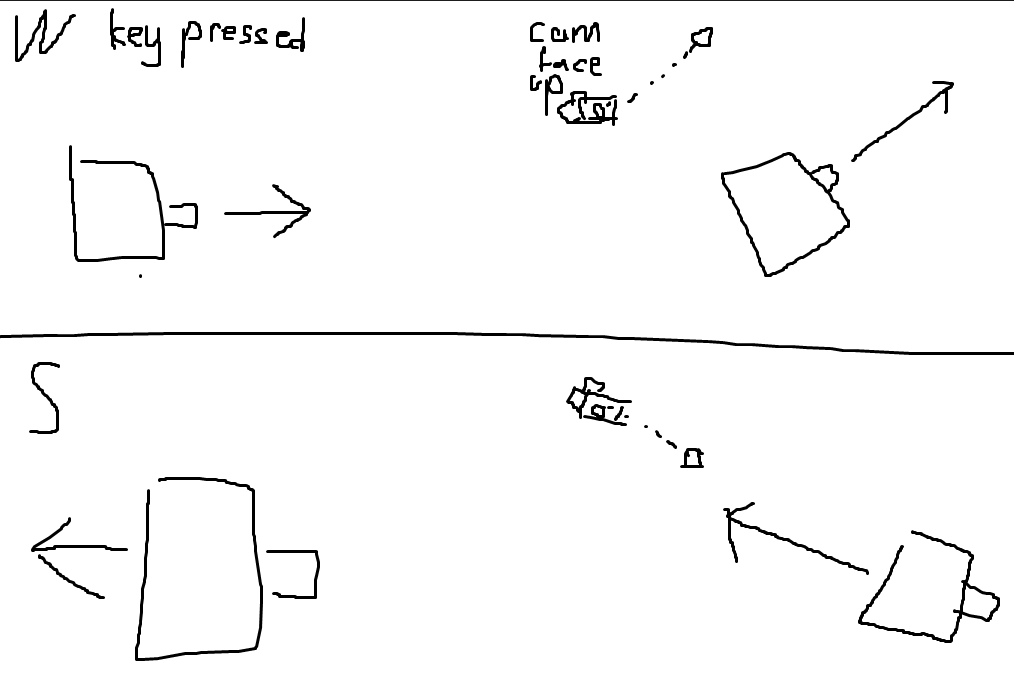 W key pressed
cam
face
up
S